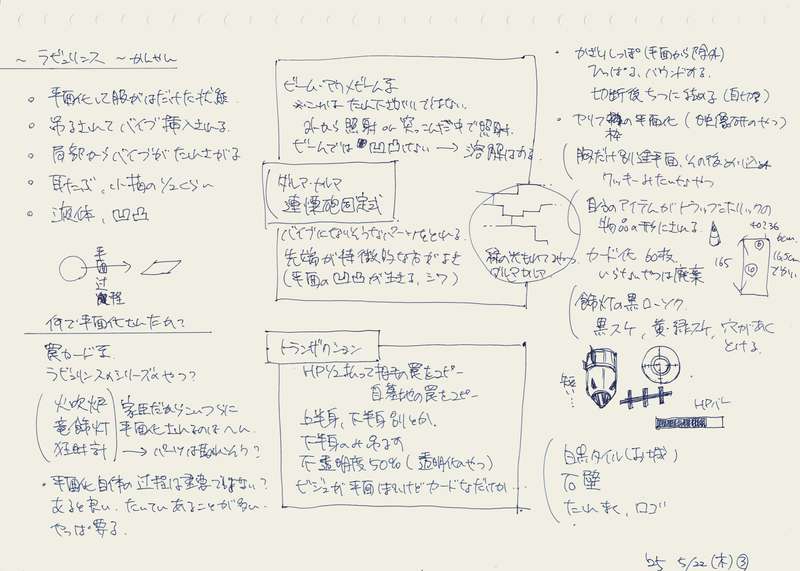 ~ ラビュリンス ~かんやん
。平面化して服がはだけた状態
。吊るされてバイブ挿入される
。局部からバイブがたれさがる
。耳たぶ、小指の1/2くらい
。液体、凹凸
平面過程
何で平面化されたか?
罠カード系
ラビュリンスのシリーズのやつ?
火吹炉
竜飾灯
狂時計
平面化されるのは
→パーツは
・平面化自体の過程は重要ではない?
あると良い、たいていあることが多い
やっぱ要る。
ビーム・アカメビーム系
※これは
外から照射 or 突っこんで中で照射。
ビームでは凹凸しない → 溶解はする。
ダルマ・カルマ
連慄砲固定式
バイブになりそうなパーツをとれる。
先端が特徴的な方がよき
(平面の凹凸が生きる、シワ)
ダルマカルマ
トランザクション
HP1/2払って相手の罠をコピー
自墓地の罠をコピー
上半身、下半身別とか。
下半身のみ吊るす
不透明度50% (透明化のやつ)
ビジュが平面っぽいけどカードなだけか…
・かざりしっぽ (平面から除外)
ひっぱる、バウンドする。
切断後ちつに詰める (自切)
・ヤリフ の平面化 (映像研のやつ)
枠
胸だけ別途平面、その後めり込め
クッキーみたいなやつ
自身のアイテムがトラップホリックの
物品の形にされる。
カード化 60枚。
いらないやつは廃棄
165
40236
6cm
16.5cm
でかい
飾灯の黒ローソク
黒スケ、黄・緑スケ、穴があく
とける。
短い…
HPバー
白黒タイル(お城)
石壁
たれまく、ロゴ
'25 5/22(木)③